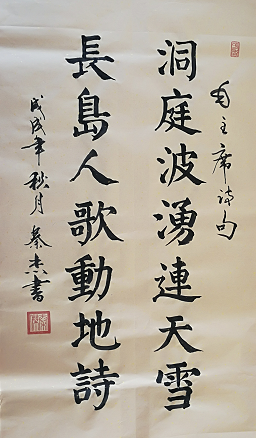 毛主席诗句
洞庭波湧連天雪
長島人歌動地詩
戊戌年秋月 秦書